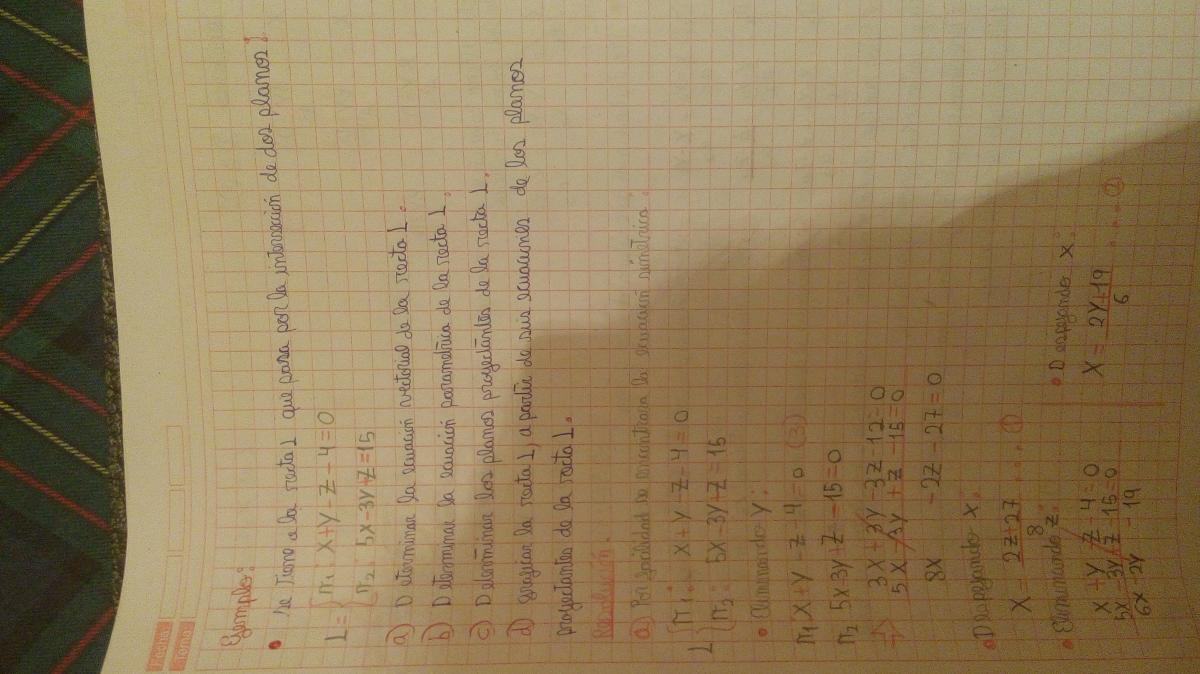 Fecha
Tema
Ejemplo:
• Se tiene a la recta L que pasa por la intersección de dos planos:
L = { π1: x + y - z - 4 = 0
π2: 5x - 3y + z = 15
a) Determinar la ecuación vectorial de la recta L.
b) Determinar la ecuación paramétrica de la recta L.
c) Determinar los planos proyectantes de la recta L.
d) Graficar la recta L, a partir de sus ecuaciones de los planos
proyectantes de la recta L.
Resolución.
a) Por facilidad se encontrara la ecuación simétrica:
L { π1: x + y - z - 4 = 0
π2: 5x - 3y + z = 15
• Eliminando y:
π1 x + y - z - 4 = 0 (3)
π2 5x - 3y + z - 15 = 0
⇒ 3x + 3y - 3z - 12 = 0
5x - 3y + z - 15 = 0
8x - 2z - 27 = 0
• Despejando x:
x = 2z + 27 / 8 ..... ①
• Eliminando z:
x + y - z - 4 = 0
5x - 3y + z - 15 = 0
6x - 2y - 19
• Despejando x:
x = 2y + 19 / 6 ..... ②